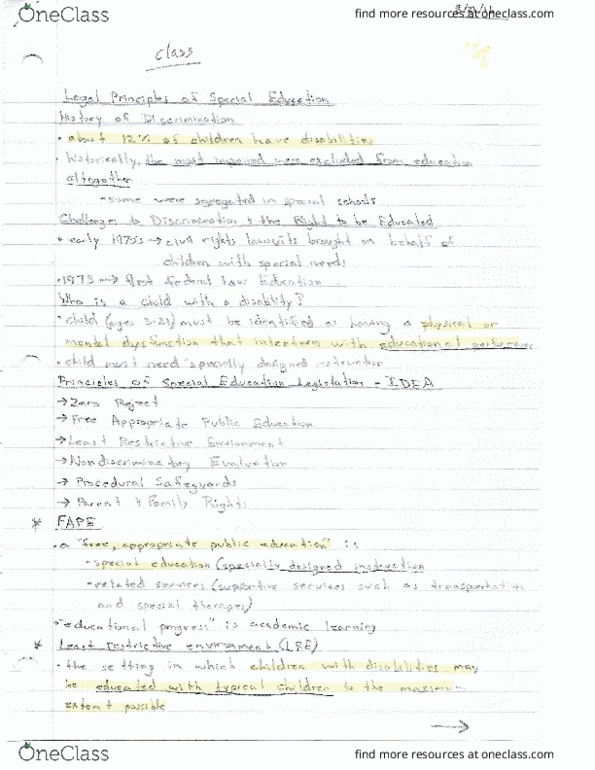 OneClass
find more resources at oneclass.com
class
Legal Principles of Special Education
History of Discrimination
• about 12% of children have disabilities
• historically, the most impaired were excluded from education
altogether
• some were segregated in special schools
Challenges to Discrimination & the Right to be Educated
• early 1970s → civil rights lawsuits brought on behalf of
children with special needs
• 1975 → first federal law Education
Who is a child with a disability?
• child (ages 3-21) must be identified as having a physical or
mental dysfunction that interferes with educational performance
• child must need "specially designed instruction
Principles of Special Education Legislation - IDEA
→ Zero Reject
→ Free Appropriate Public Education
→ Least Restrictive Environment
→ Nondiscriminatory Evaluation
→ Procedural Safeguards
→ Parent & Family Rights
* FAPE
• a "free, appropriate public education" is
• special education (specially designed instruction
• related services (supportive services such as transportation
and special therapies)
• "educational progress" is academic learning
* Least restrictive environment (LRE)
• the setting in which children with disabilities may
be educated with typical children to the maximum
extent possible
→
OneClass
find more resources at oneclass.com